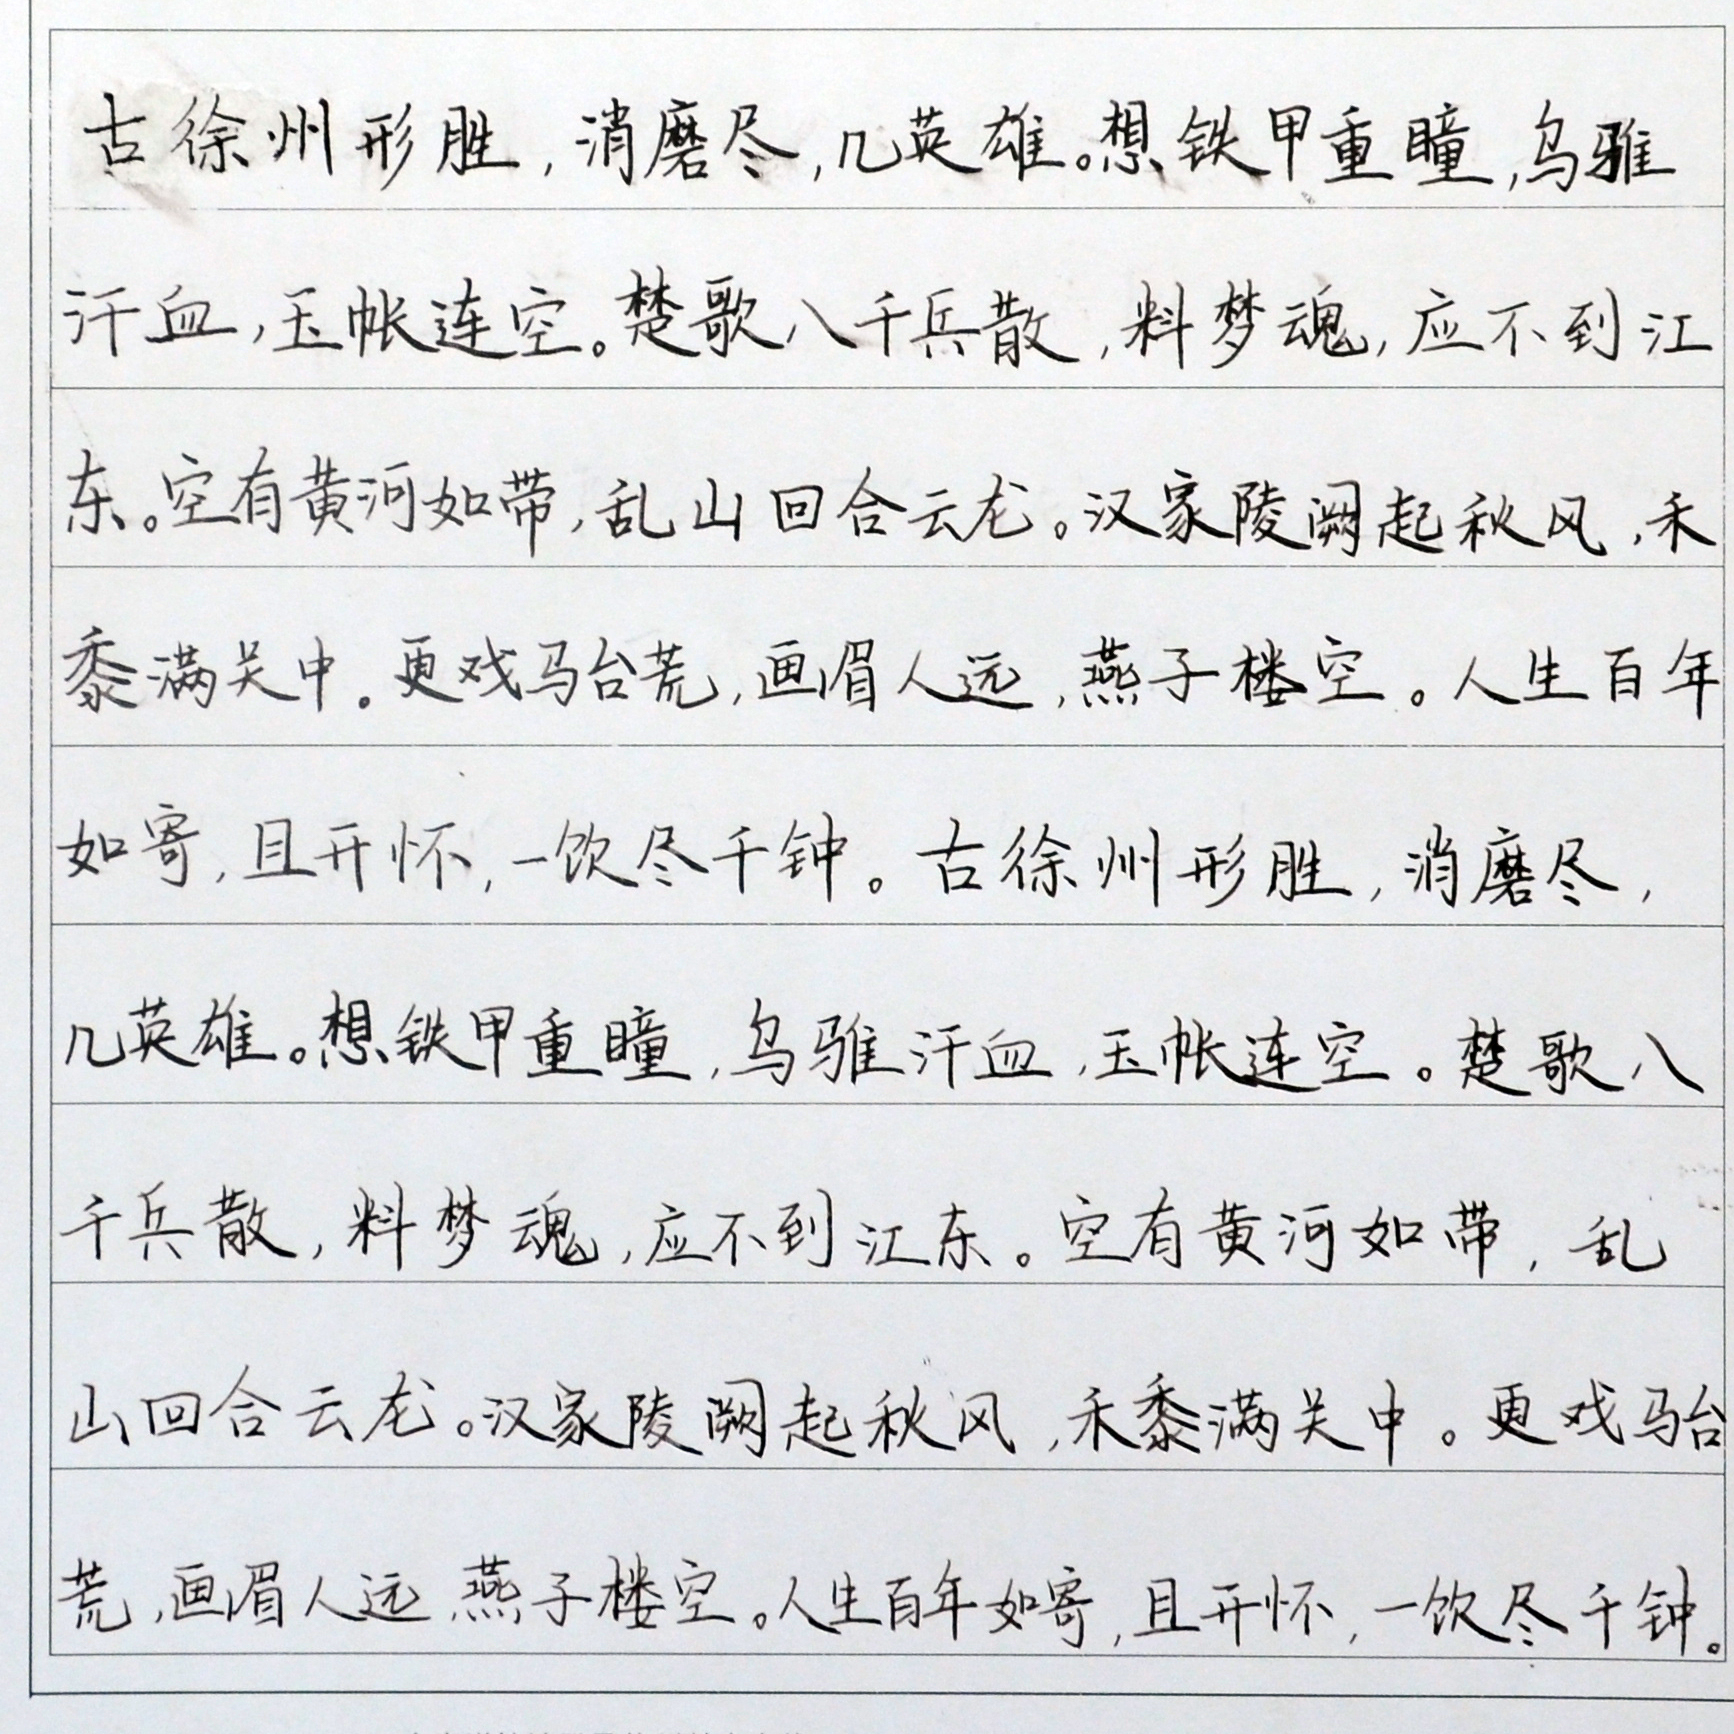 古徐州形胜,消磨尽,几英雄。想铁甲重瞳,乌雅
汗血,玉帐连空。楚歌八千兵散,料梦魂,应不到江
东。空有黄河如带,乱山回合云龙。汉家陵阙起秋风,禾
黍满关中。更戏马台荒,画眉人远,燕子楼空。人生百年
如寄,且开怀,一饮尽千钟。古徐州形胜,消磨尽,
几英雄。想铁甲重瞳,乌骓汗血,玉帐连空。楚歌八
千兵散,料梦魂,应不到江东。空有黄河如带,乱
山回合云龙。汉家陵阙起秋风,禾黍满关中。更戏马台
荒,画眉人远 燕子楼空。人生百年如寄,且开怀,一饮尽千钟。